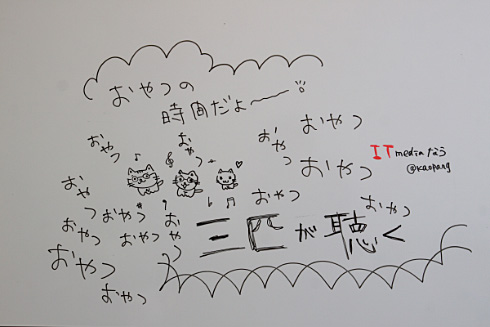 おやつの
時間だよ〜〜
おやつ
おやつ
おやつ
おやつ
おやつ
ITmediaなう
@kaopang
おやつ
おやつ
おやつ
おやつ
おやつ
おやつ
おやつ
三匹が聴く
おやつ
おやつ
おやつ